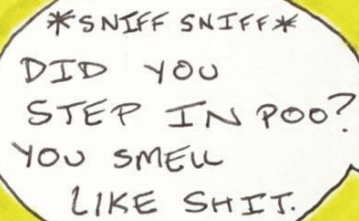 *SNIFF SNIFF*
DID YOU
STEP IN POO?
YOU SMELL
LIKE SHIT.